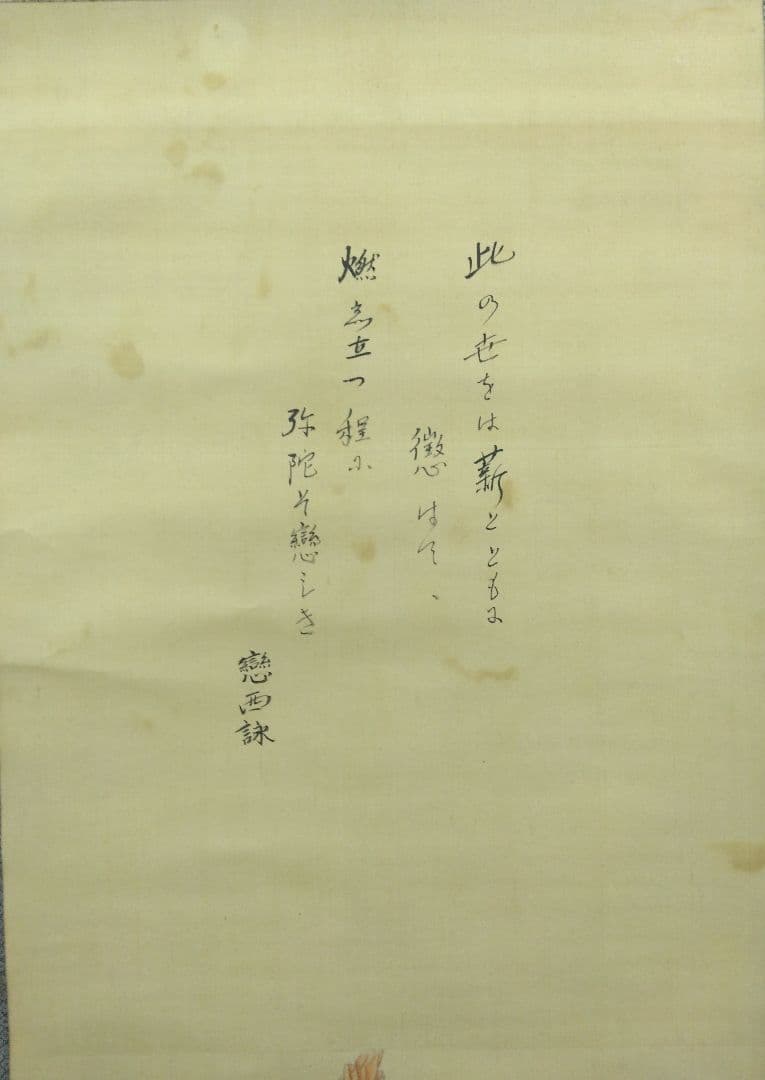 此の世をは薪とともに
懲はてゝ
燃え立つ程に
弥陀そ戀しき
戀西詠